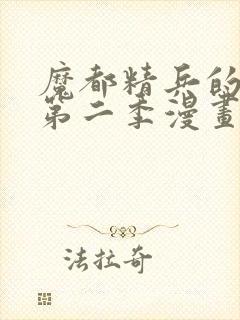 魔都精兵的
第二季漫畫
法拉奇